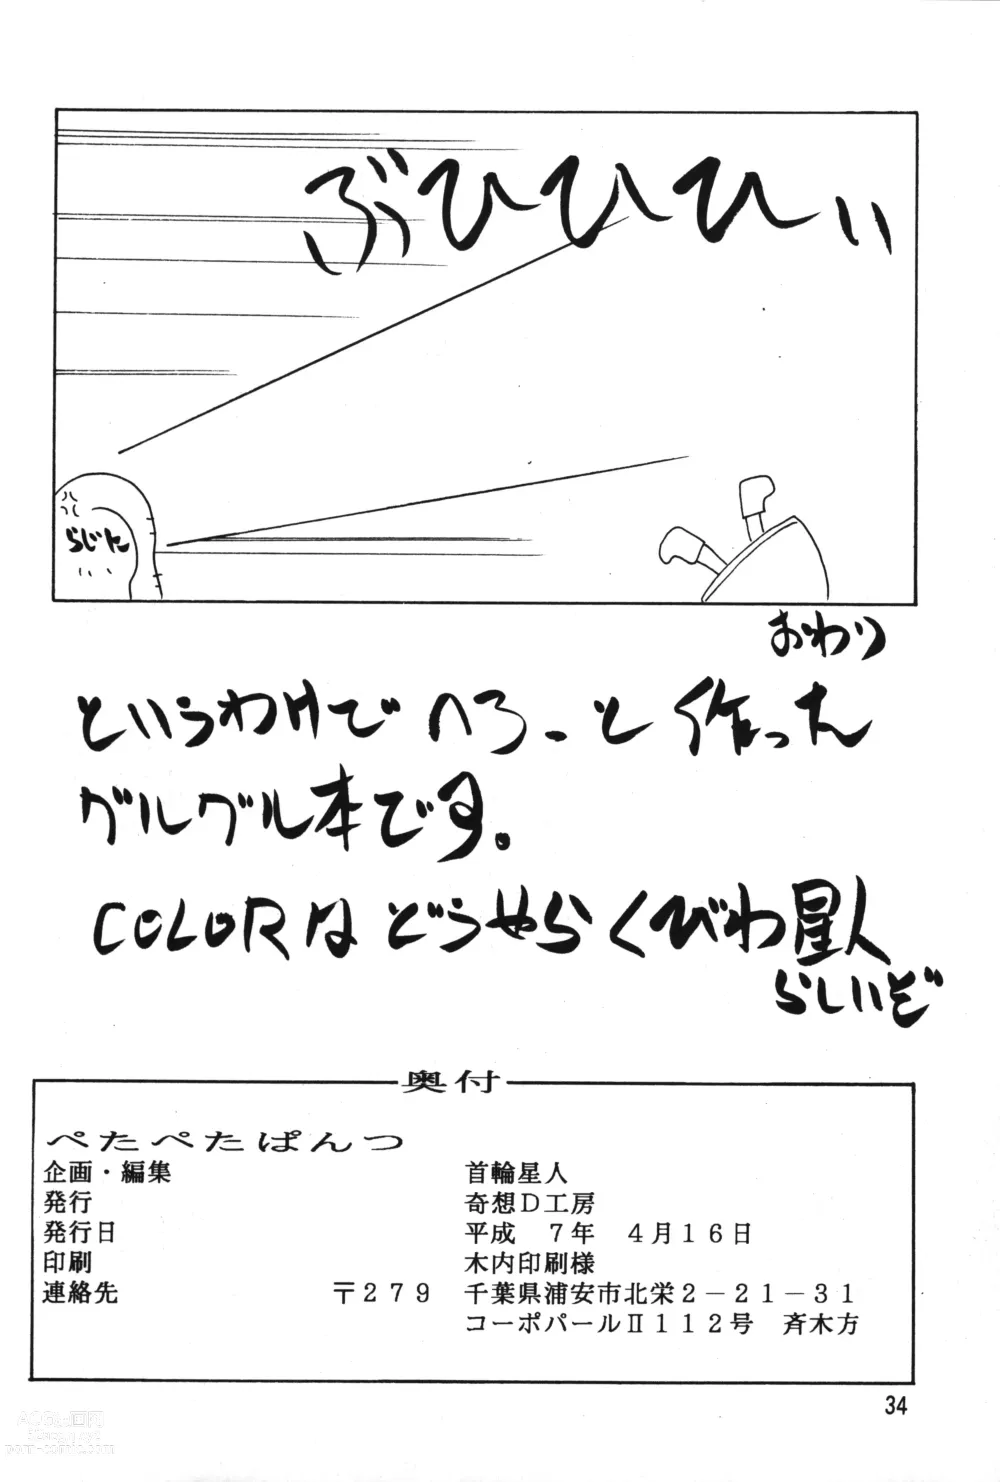 ぶひひひぃ
らじに
おわり
というわけで へろーと 作った
グルグル本です。
COLORは どうやら くびわ星人
らしいぞ
奥付
ぺたぺたぱんつ
企画・編集 首輪星人
発行 奇想D工房
発行日 平成 7年 4月16日
印刷 木内印刷様
連絡先 〒279 千葉県浦安市北栄2-21-31
コーポパールⅡ112号 斉木方
34